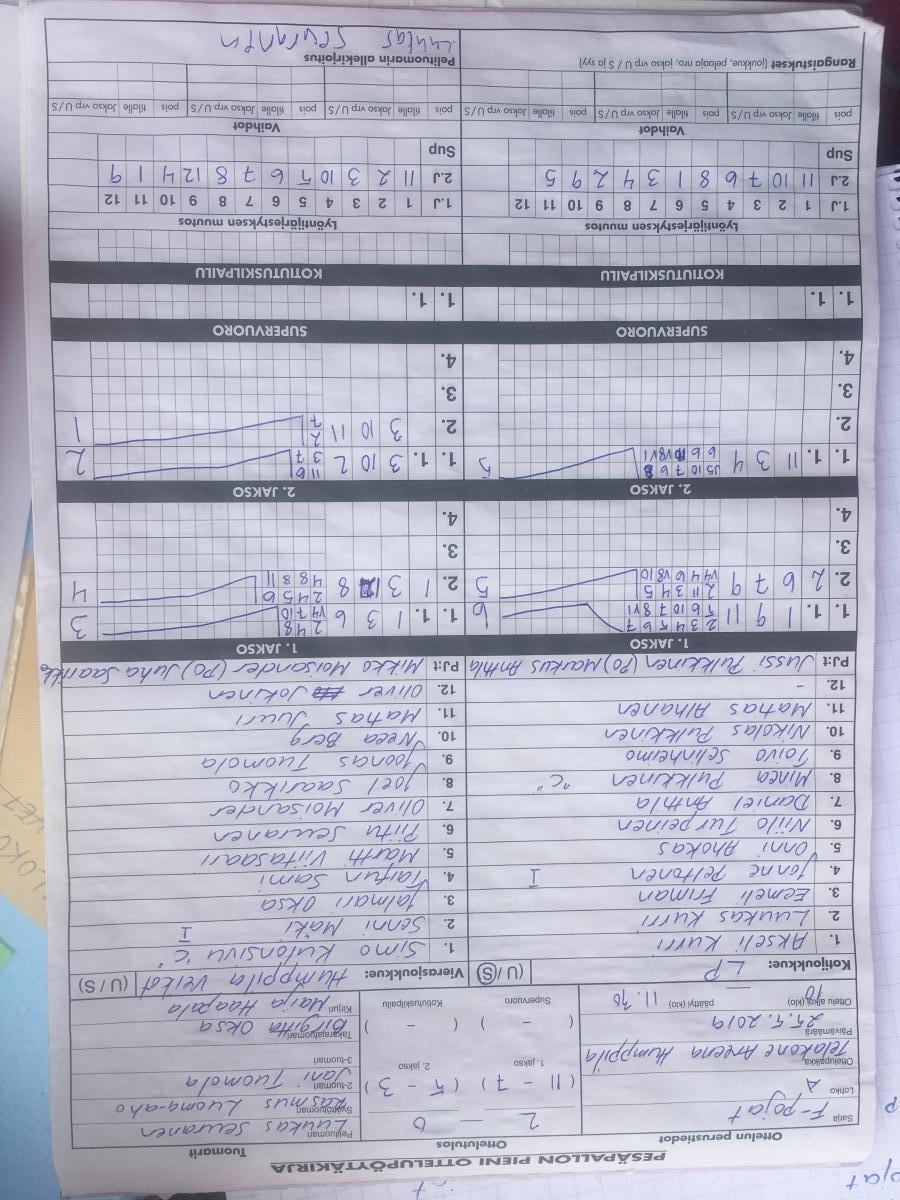 PESÄPALLON PIENI OTTELUPÖYTÄKIRJA
Ottelun perustiedot
Sarja F-pojat
Lohko A
Ottelupaikka Telakone Areena Humppila
Päivämäärä 25.5.2019
Ottelu alkoi (klo) 10 päättyi (klo) 11.30
Ottelutulos
2 — 0
1. jakso 2. jakso
( 11 - 7 ) ( 5 - 3 )
Supervuoro Kotiutuskilpailu
( - ) ( - )
Tuomarit
Pelituomari Luukas Seuranen
Syöttötuomari Rasmus Luoma-aho
2-tuomari Jani Tuomola
3-tuomari
Takarajatuomari Birgitta Oksa
Kirjuri Marja Haapala
Kotijoukkue: LP (U / S)
1. Akseli Kurri
2. Luukas Kurri
3. Eemeli Friman
4. Jonne Peltonen I
5. Onni Ahokas
6. Niilo Turpeinen
7. Daniel Anttila
8. Minea Pulkkinen "C"
9. Toivo Selinheimo
10. Nikolas Pulkkinen
11. Matias Alhanen
12. -
PJ:t Jussi Pulkkinen (PO) Markus Anttila
Vierasjoukkue: Humppila Veikot (U / S)
1. Simo Kulonsivu "C"
2. Senni Mäki I
3. Jalmari Oksa
4. Taifun Sami
5. Martti Viitasaari
6. Piitu Seuranen
7. Oliver Moisander
8. Joel Saarikko
9. Joonas Tuomola
10. Neea Berg
11. Matias Juuri
12. Oliver Jokinen
PJ:t Mikko Moisander (PO) Juha Saarikko
1. JAKSO 1. JAKSO
1. 1. 1 9 11 6
2. 2 6 7 9 5
3.
4.
1. 1. 1 3 6 3
2. 1 3 8 4
3.
4.
2. JAKSO 2. JAKSO
1. 1. 11 3 4 5
2.
3.
4.
1. 1. 3 10 2 2
2. 3 10 11 1
3.
4.
SUPERVUORO SUPERVUORO
1. 1. 1. 1.
KOTIUTUSKILPAILU KOTIUTUSKILPAILU
Lyöntijärjestyksen muutos
1.J 1 2 3 4 5 6 7 8 9 10 11 12
2.J 11 10 7 6 8 1 3 4 2 9 5
Sup
Lyöntijärjestyksen muutos
1.J 1 2 3 4 5 6 7 8 9 10 11 12
2.J 11 2 3 10 5 6 7 8 12 4 1 9
Sup
Vaihdot
pois tilalle Jakso vrp U/S pois tilalle Jakso vrp U/S pois tilalle Jakso vrp U/S
Vaihdot
pois tilalle Jakso vrp U/S pois tilalle Jakso vrp U/S pois tilalle Jakso vrp U/S
Rangaistukset (joukkue, pelaaja nro, jakso vrp U / S ja syy)
Pelituomarin allekirjoitus
Luukas Seuranen